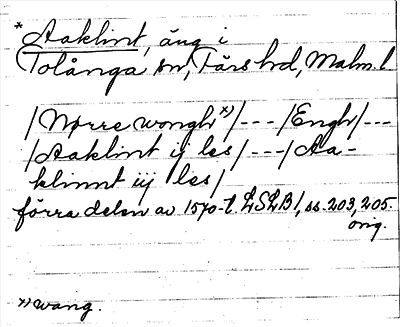 * Aaklint, äng i
Tolånga sn, Färs hd, Malm. l
/Nørre wongh x)/---/Engh/---
/Aaklint ij les/---/Aa-
klinnt iij les/
förra delen av 1570-t. LSLB 1, ss. 203, 205.
orig.
x) wang.